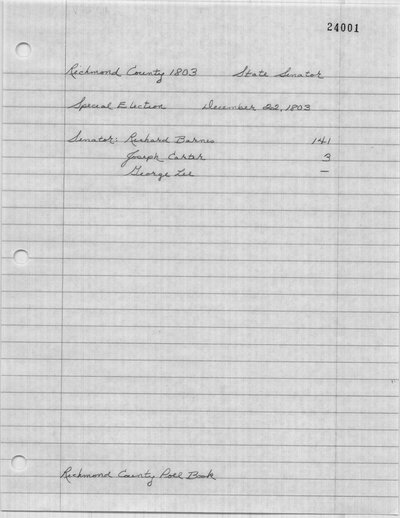 24001
Richmond County 1803 State Senator
Special Election December 22, 1803
Senator: Richard Barnes 141
Joseph Carter 3
George Lee —
Richmond County Poll Book